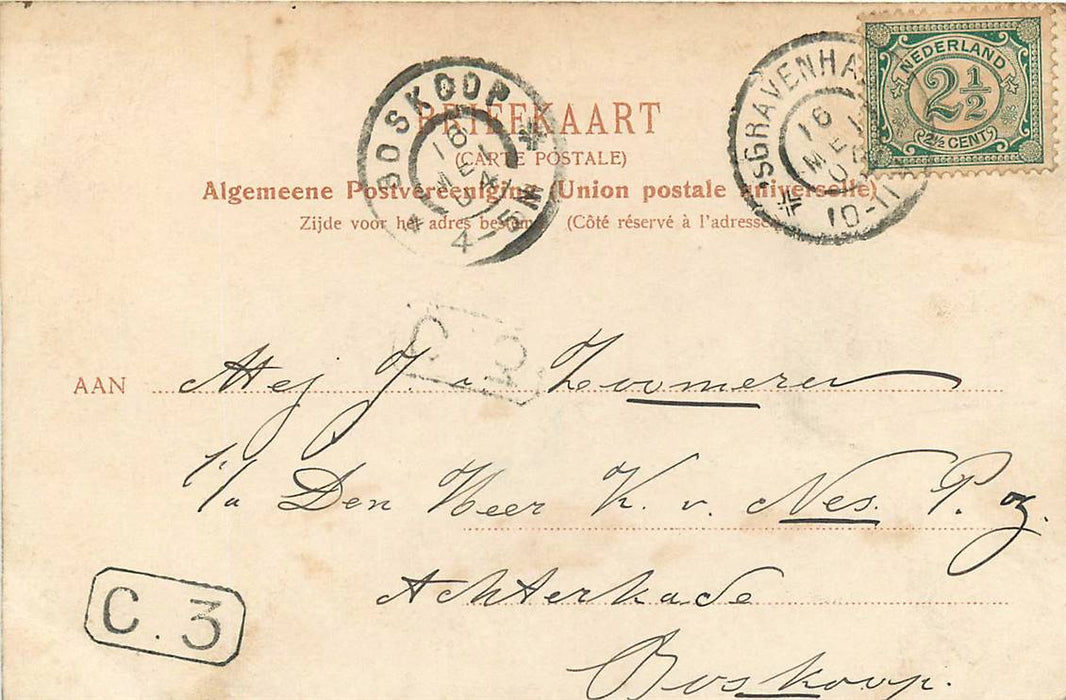 BRIEFKAART
(CARTE POSTALE)
Algemeene Postvereeniging (Union postale universelle)
Zijde voor het adres bestemd. (Côté réservé à l'adresse.)
BOSKOOP
16
MEI
04
4-5N
'SGRAVENHA
16
MEI
10-11
NEDERLAND
2½
2½ CENT
C. 3
AAN Mej J. a Zoomeren
p/a Den Heer K. v. Nes. P. zg.
Achterkade
Boskoop.
C. 3